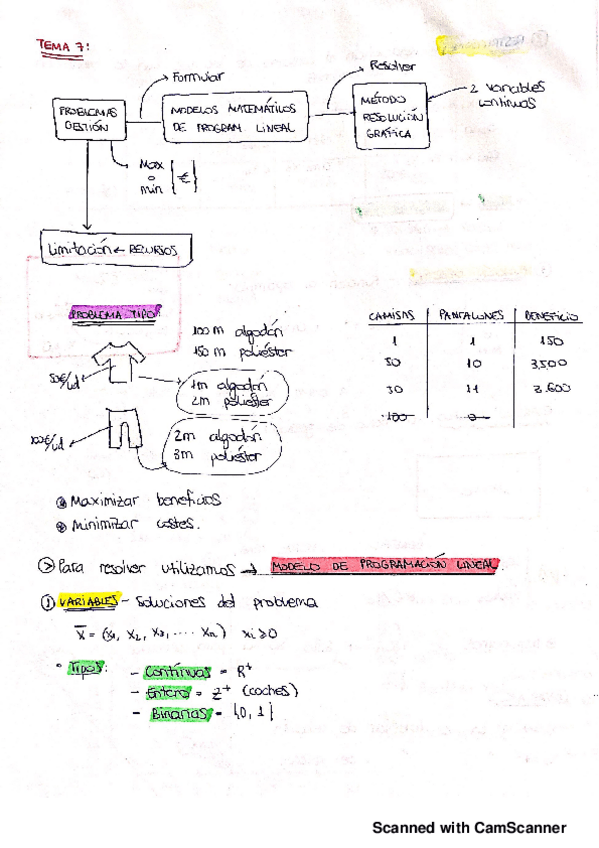 TEMA 7:
Formular
Resolver
PROBLEMAS
GESTIÓN
MODELOS MATEMÁTICOS
DE PROGRAM. LINEAL
MÉTODO
RESOLUCIÓN
GRÁFICA
2 variables
continuas
Max
o
min
€
Limitación ← RECURSOS
PROBLEMA TIPO:
100 m algodón
150 m poliéster
50€/ud
1m algodón
2m poliéster
100€/ud
2m algodón
3m poliéster
CAMISAS PANTALONES BENEFICIO
1 1 150
50 10 3.500
30 11 2.600
100 0
Maximizar beneficios
Minimizar costes.
Para resolver utilizamos → MODELO DE PROGRAMACIÓN LINEAL.
① VARIABLES - Soluciones del problema
X̄ = (x₁, x₂, x₃, .... xₙ) xi ≥ 0
• Tipos:
- Continuas = R⁺
- Entera = Z⁺ (coches)
- Binarias = {0, 1}
Scanned with CamScanner